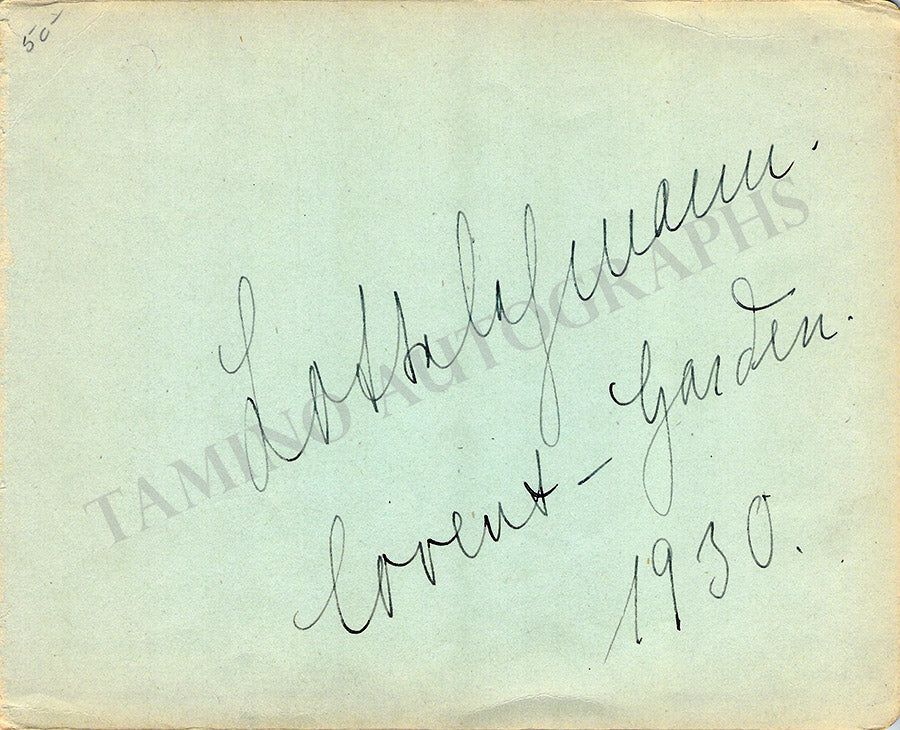 50-
Lotte Lehmann.
Covent - Garden.
1930.
TAMINO AUTOGRAPHS